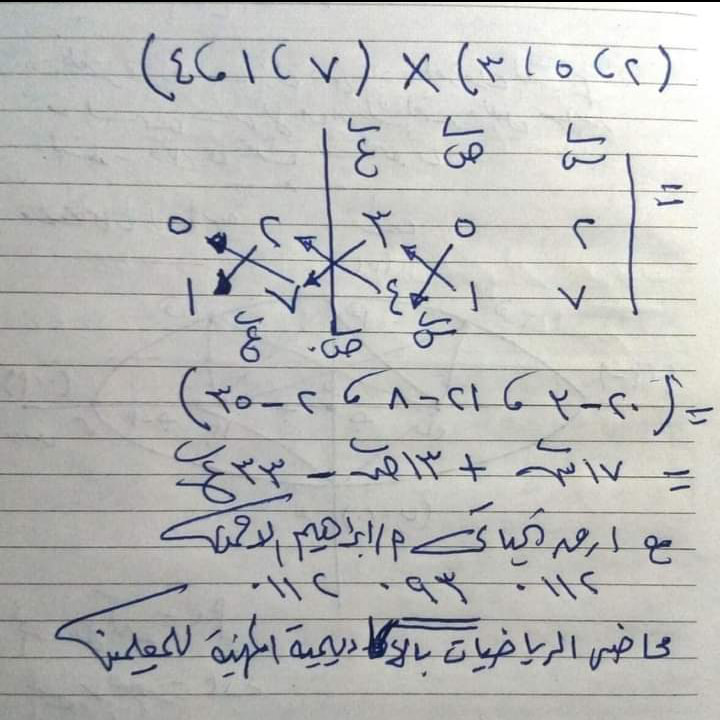 (٢ ، ٥ ، ٣) × (٧ ، ١ ، ٤)
س ص ع
= ٢ ٥ ٣ ٢ ٥
٧ ١ ٤ ٧ ١
س ص ع
= (٢٠ - ٣ ، ٢١ - ٨ ، ٢ - ٣٥)
= ١٧ س + ١٣ ص - ٣٣ ع
مع ارق م/ابراهيم
٠١١٢ ٠٩٣ ٠١١٢
محاضر الرياضيات بالأكاديمية المهنية للمعلمين